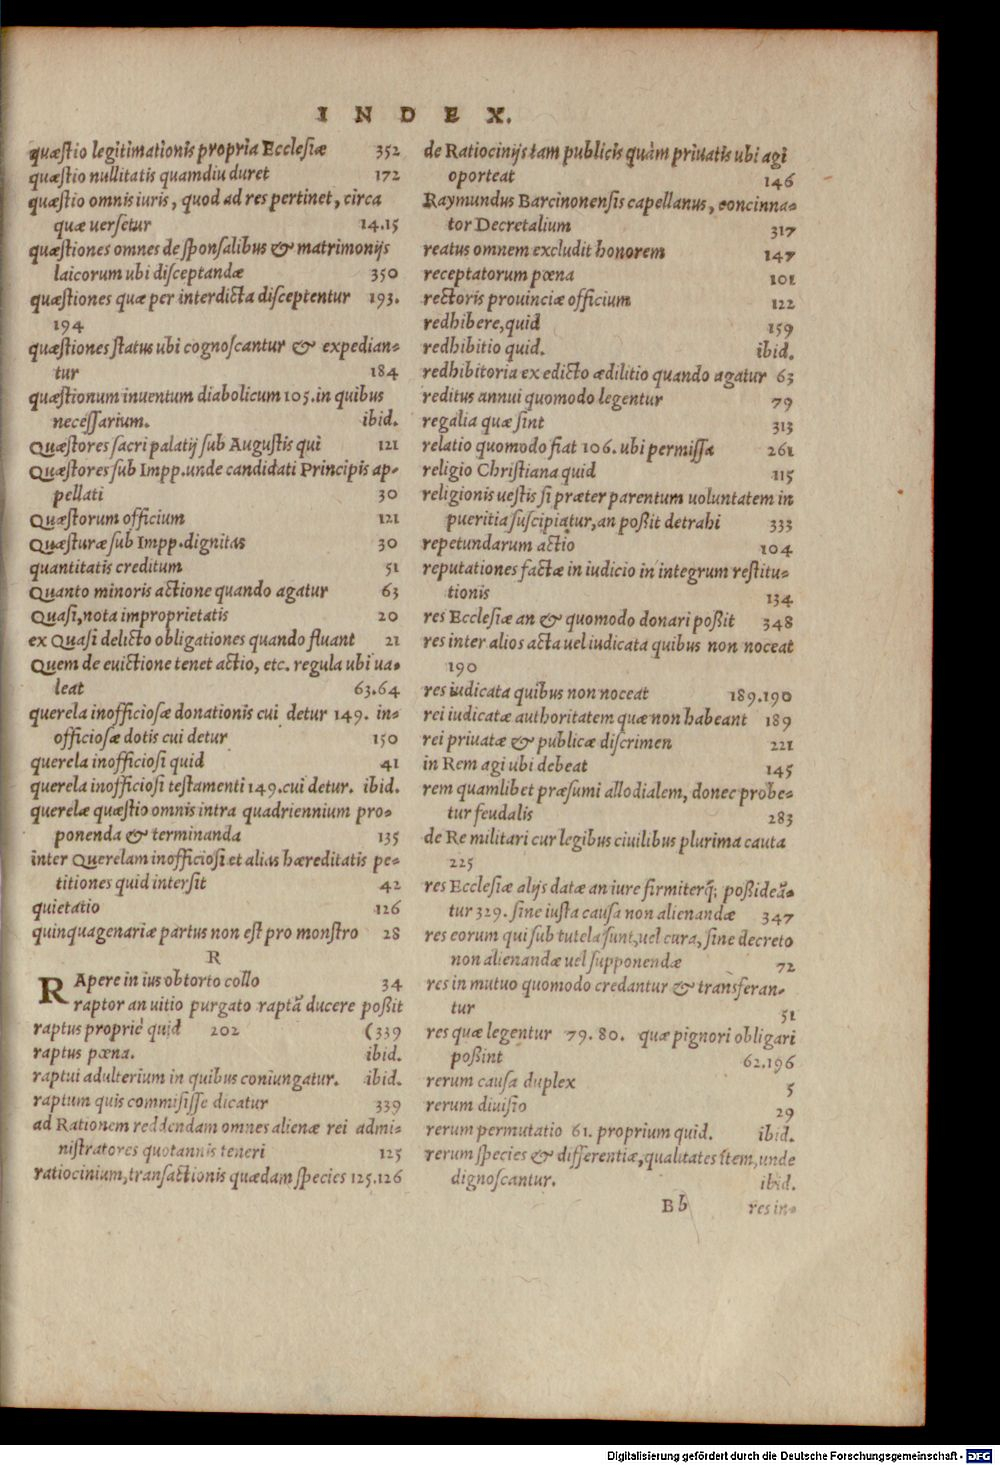 INDEX.
quæstio legitimationis propria Ecclesiæ 352
quæstio nullitatis quamdiu duret 172
quæstio omnis iuris, quod ad res pertinet, circa
quæ uersetur 14.15
quæstiones omnes de sponsalibus & matrimonijs
laicorum ubi disceptandæ 350
quæstiones quæ per interdicta disceptentur 193.
194
quæstiones status ubi cognoscantur & expedian-
tur 184
quæstionum inuentum diabolicum 105. in quibus
necessarium. ibid.
Quæstores sacri palatij sub Augustis qui 121
Quæstores sub Impp. unde candidati Principis ap-
pellati 30
Quæstorum officium 121
Quæsturæ sub Impp. dignitas 30
quantitatis creditum 51
Quanto minoris actione quando agatur 63
Quasi, nota improprietatis 20
ex Quasi delicto obligationes quando fluant 21
Quem de euictione tenet actio, etc. regula ubi ua-
leat 63.64
querela inofficiosæ donationis cui detur 149. in-
officiosæ dotis cui detur 150
querela inofficiosi quid 41
querela inofficiosi testamenti 149. cui detur. ibid.
querelæ quæstio omnis intra quadriennium pro-
ponenda & terminanda 135
inter Querelam inofficiosi et alias hæreditatis pe-
titiones quid intersit 42
quietatio 126
quinquagenariæ partus non est pro monstro 28
R
RApere in ius obtorto collo 34
raptor an uitio purgato raptã ducere poßit
raptus propriè quid 202 (339
raptus pœna. ibid.
raptui adulterium in quibus coniungatur. ibid.
raptum quis commisisse dicatur 339
ad Rationem reddendam omnes alienæ rei admi-
nistratores quotannis teneri 125
ratiocinium, transactionis quædam species 125.126
de Ratiocinijs tam publicis quàm priuatis ubi agi
oporteat 146
Raymundus Barcinonensis capellanus, concinna-
tor Decretalium 317
reatus omnem excludit honorem 147
receptatorum pœna 101
rectoris prouinciæ officium 122
redhibere, quid 159
redhibitio quid. ibid.
redhibitoria ex edicto ædilitio quando agatur 63
reditus annui quomodo legentur 79
regalia quæ sint 313
relatio quomodo fiat 106. ubi permissa 261
religio Christiana quid 115
religionis uestis si præter parentum uoluntatem in
pueritia suscipiatur, an poßit detrahi 333
repetundarum actio 104
reputationes factæ in iudicio in integrum restitu-
tionis 134
res Ecclesiæ an & quomodo donari poßit 348
res inter alios acta uel iudicata quibus non noceat
190
res iudicata quibus non noceat 189.190
rei iudicatæ authoritatem quæ non habeant 189
rei priuatæ & publicæ discrimen 221
in Rem agi ubi debeat 145
rem quamlibet præsumi allodialem, donec probe-
tur feudalis 283
de Re militari cur legibus ciuilibus plurima cauta
225
res Ecclesiæ alijs datæ an iure firmiterq́; poßideã-
tur 329. sine iusta causa non alienandæ 347
res eorum qui sub tutela sunt, uel cura, sine decreto
non alienandæ uel supponendæ 72
res in mutuo quomodo credantur & transferan-
tur 51
res quæ legentur 79. 80. quæ pignori obligari
poßint 62.196
rerum causa duplex 5
rerum diuisio 29
rerum permutatio 61. proprium quid. ibid.
rerum species & differentiæ, qualitates item, unde
dignoscantur. ibid.
Bb res in-
Digitalisierung gefördert durch die Deutsche Forschungsgemeinschaft - DFG